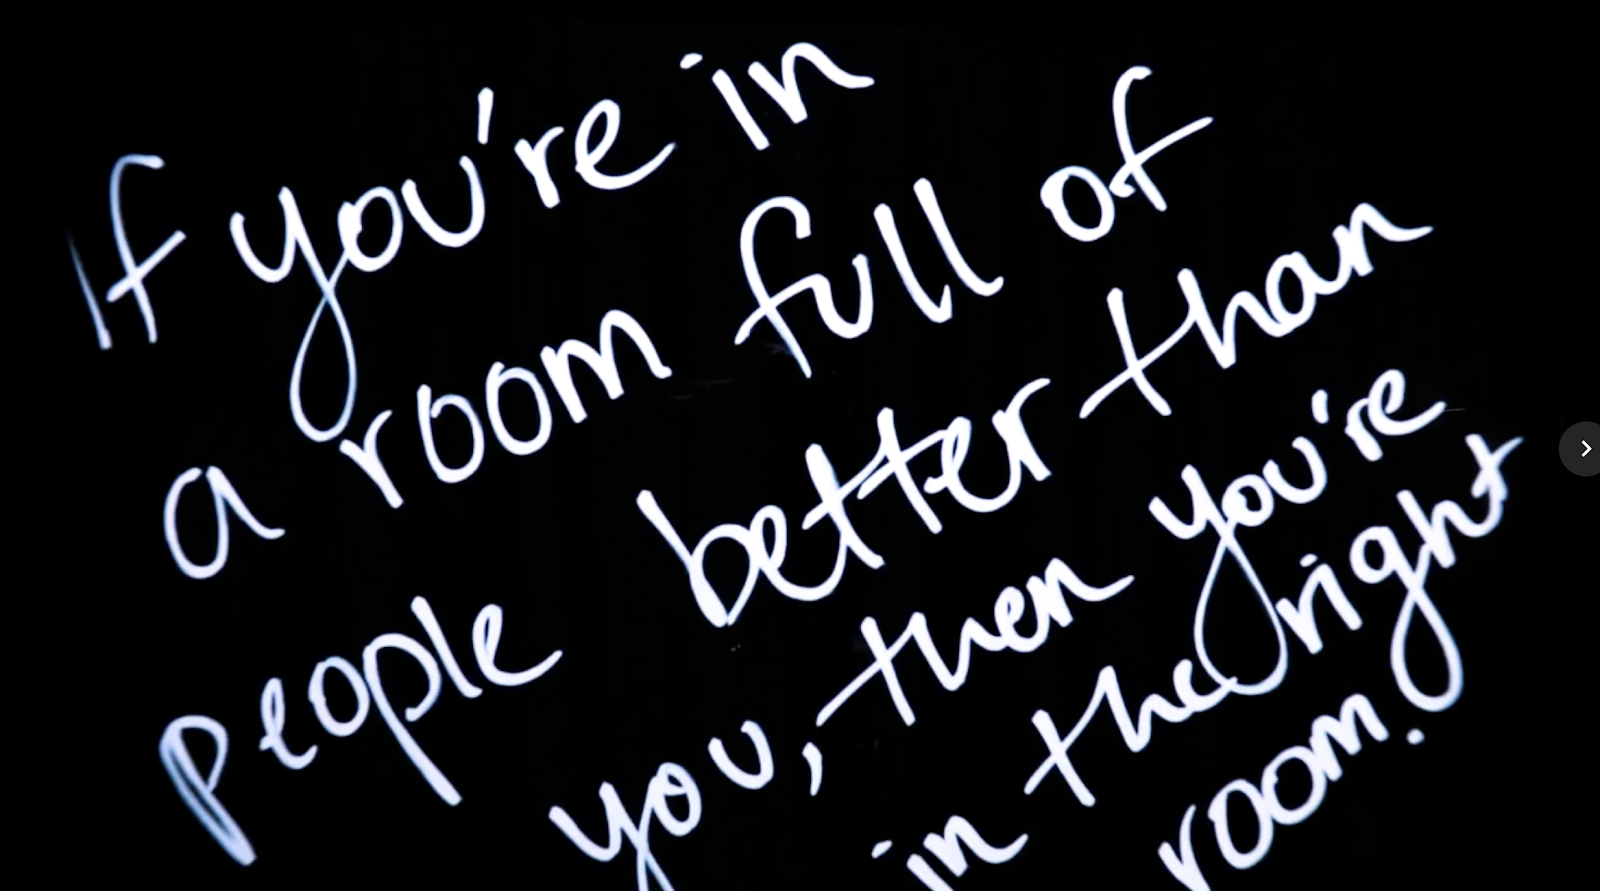 If you're in
a room full of
people better than
you, then you're
in the right
room.